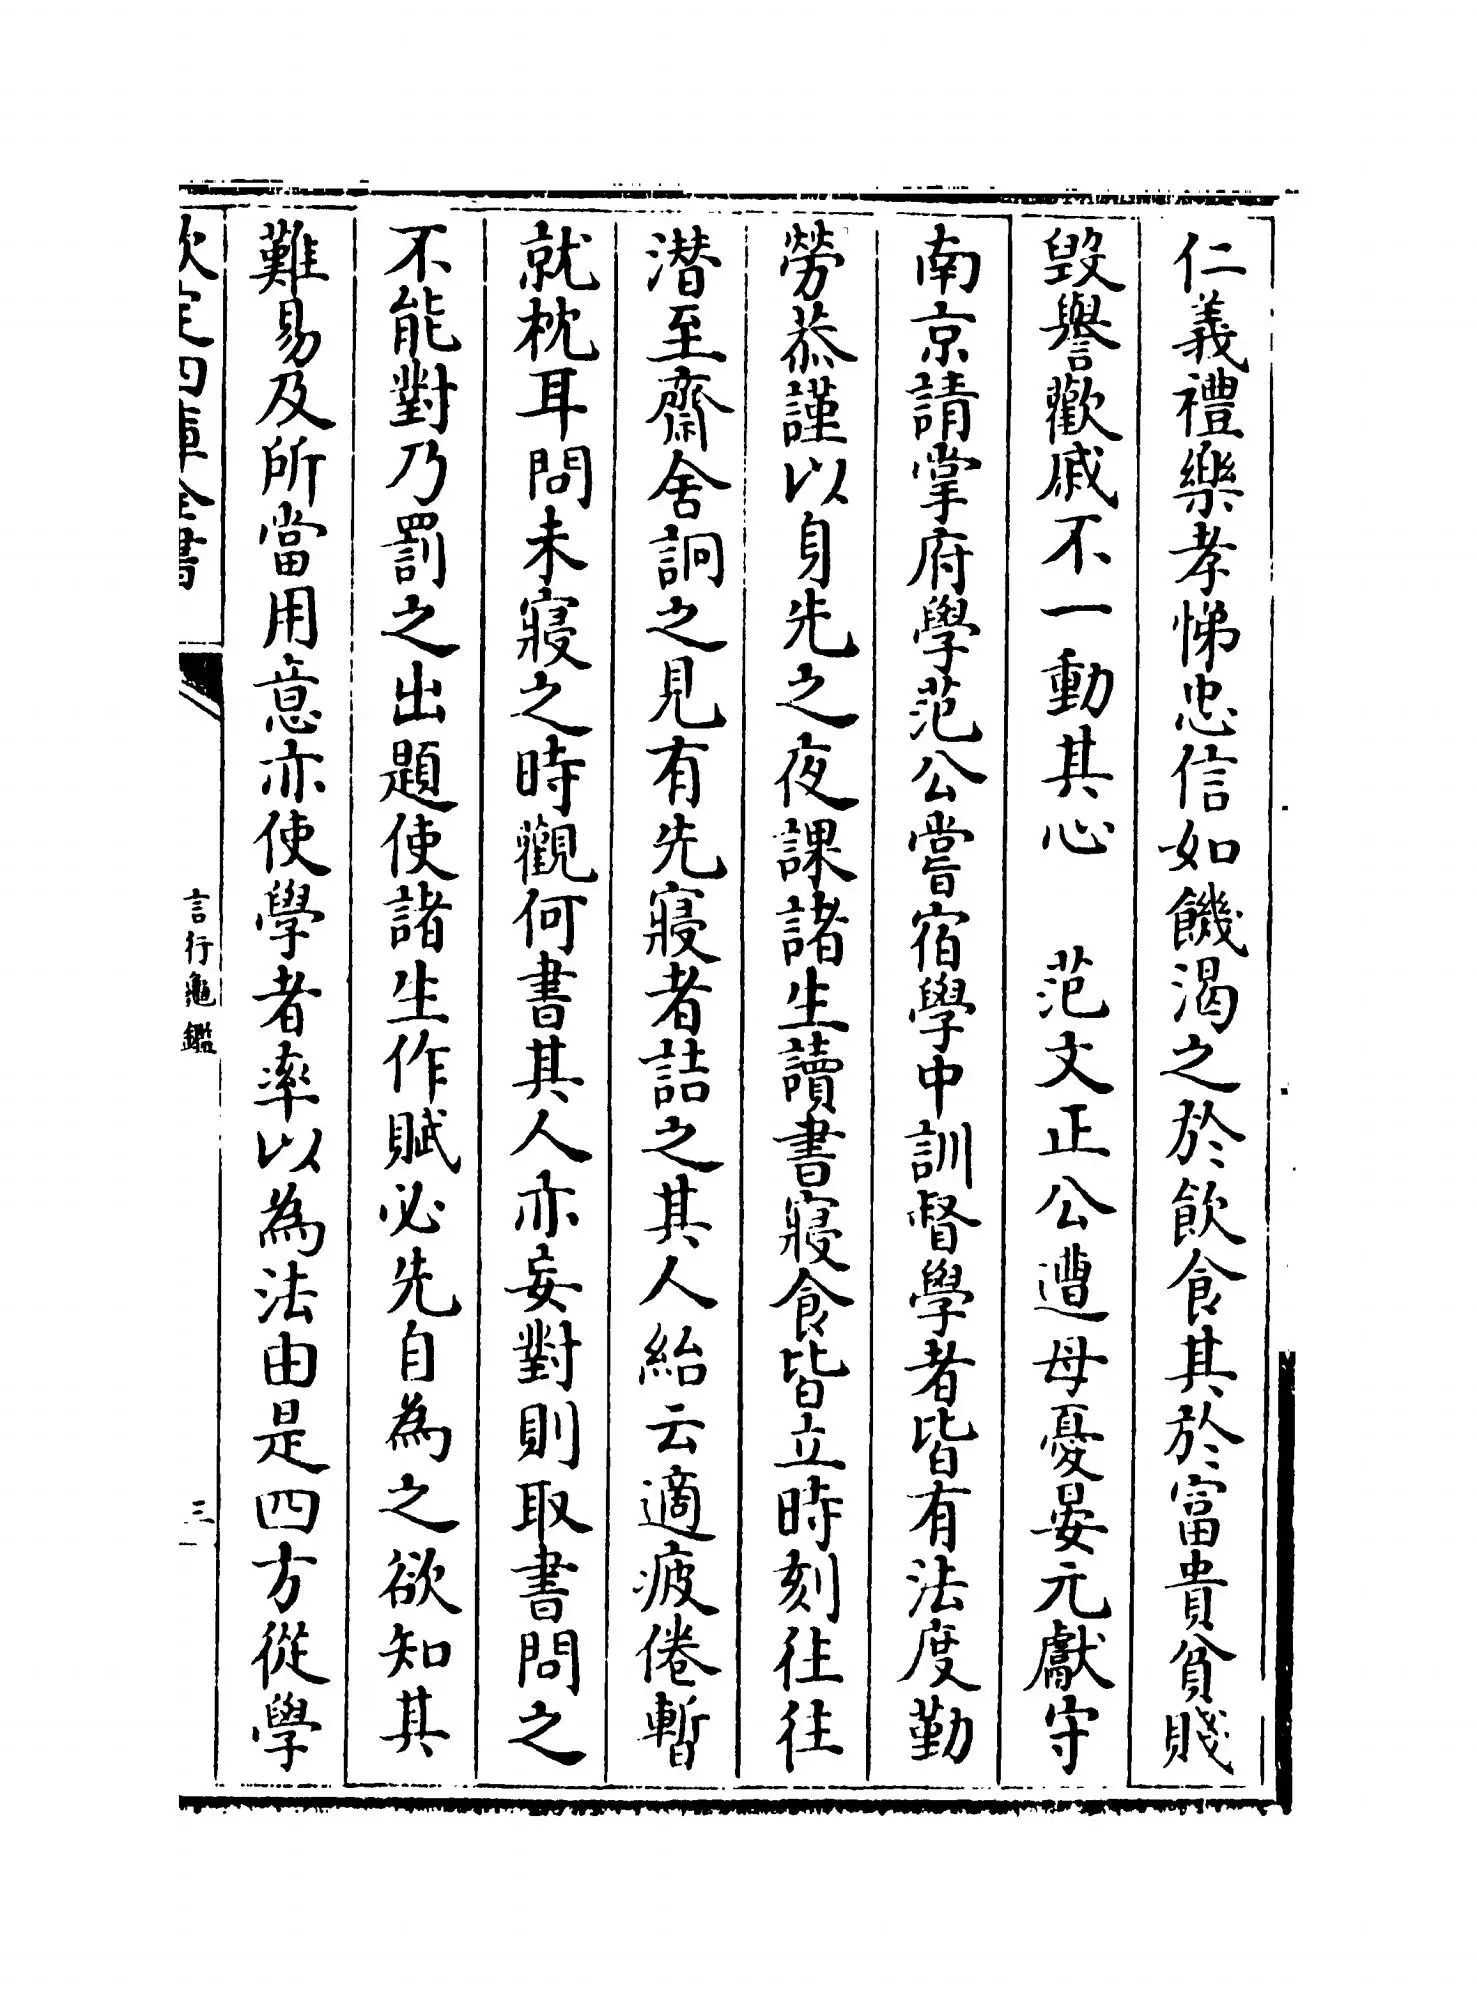 仁義禮樂孝悌忠信如饑渴之於飲食其於富貴貧賤
毀譽歡戚不一動其心　范文正公遭母憂晏元獻守
南京請掌府學范公嘗宿學中訓督學者皆有法度勤
勞恭謹以身先之夜課諸生讀書寢食皆立時刻往往
潛至齋舍詗之見有先寢者詰之其人紿云適疲倦暫
就枕耳問未寢之時觀何書其人亦妄對則取書問之
不能對乃罰之出題使諸生作賦必先自為之欲知其
難易及所當用意亦使學者率以為法由是四方從學
欽定四庫全書
言行龜鑑
三